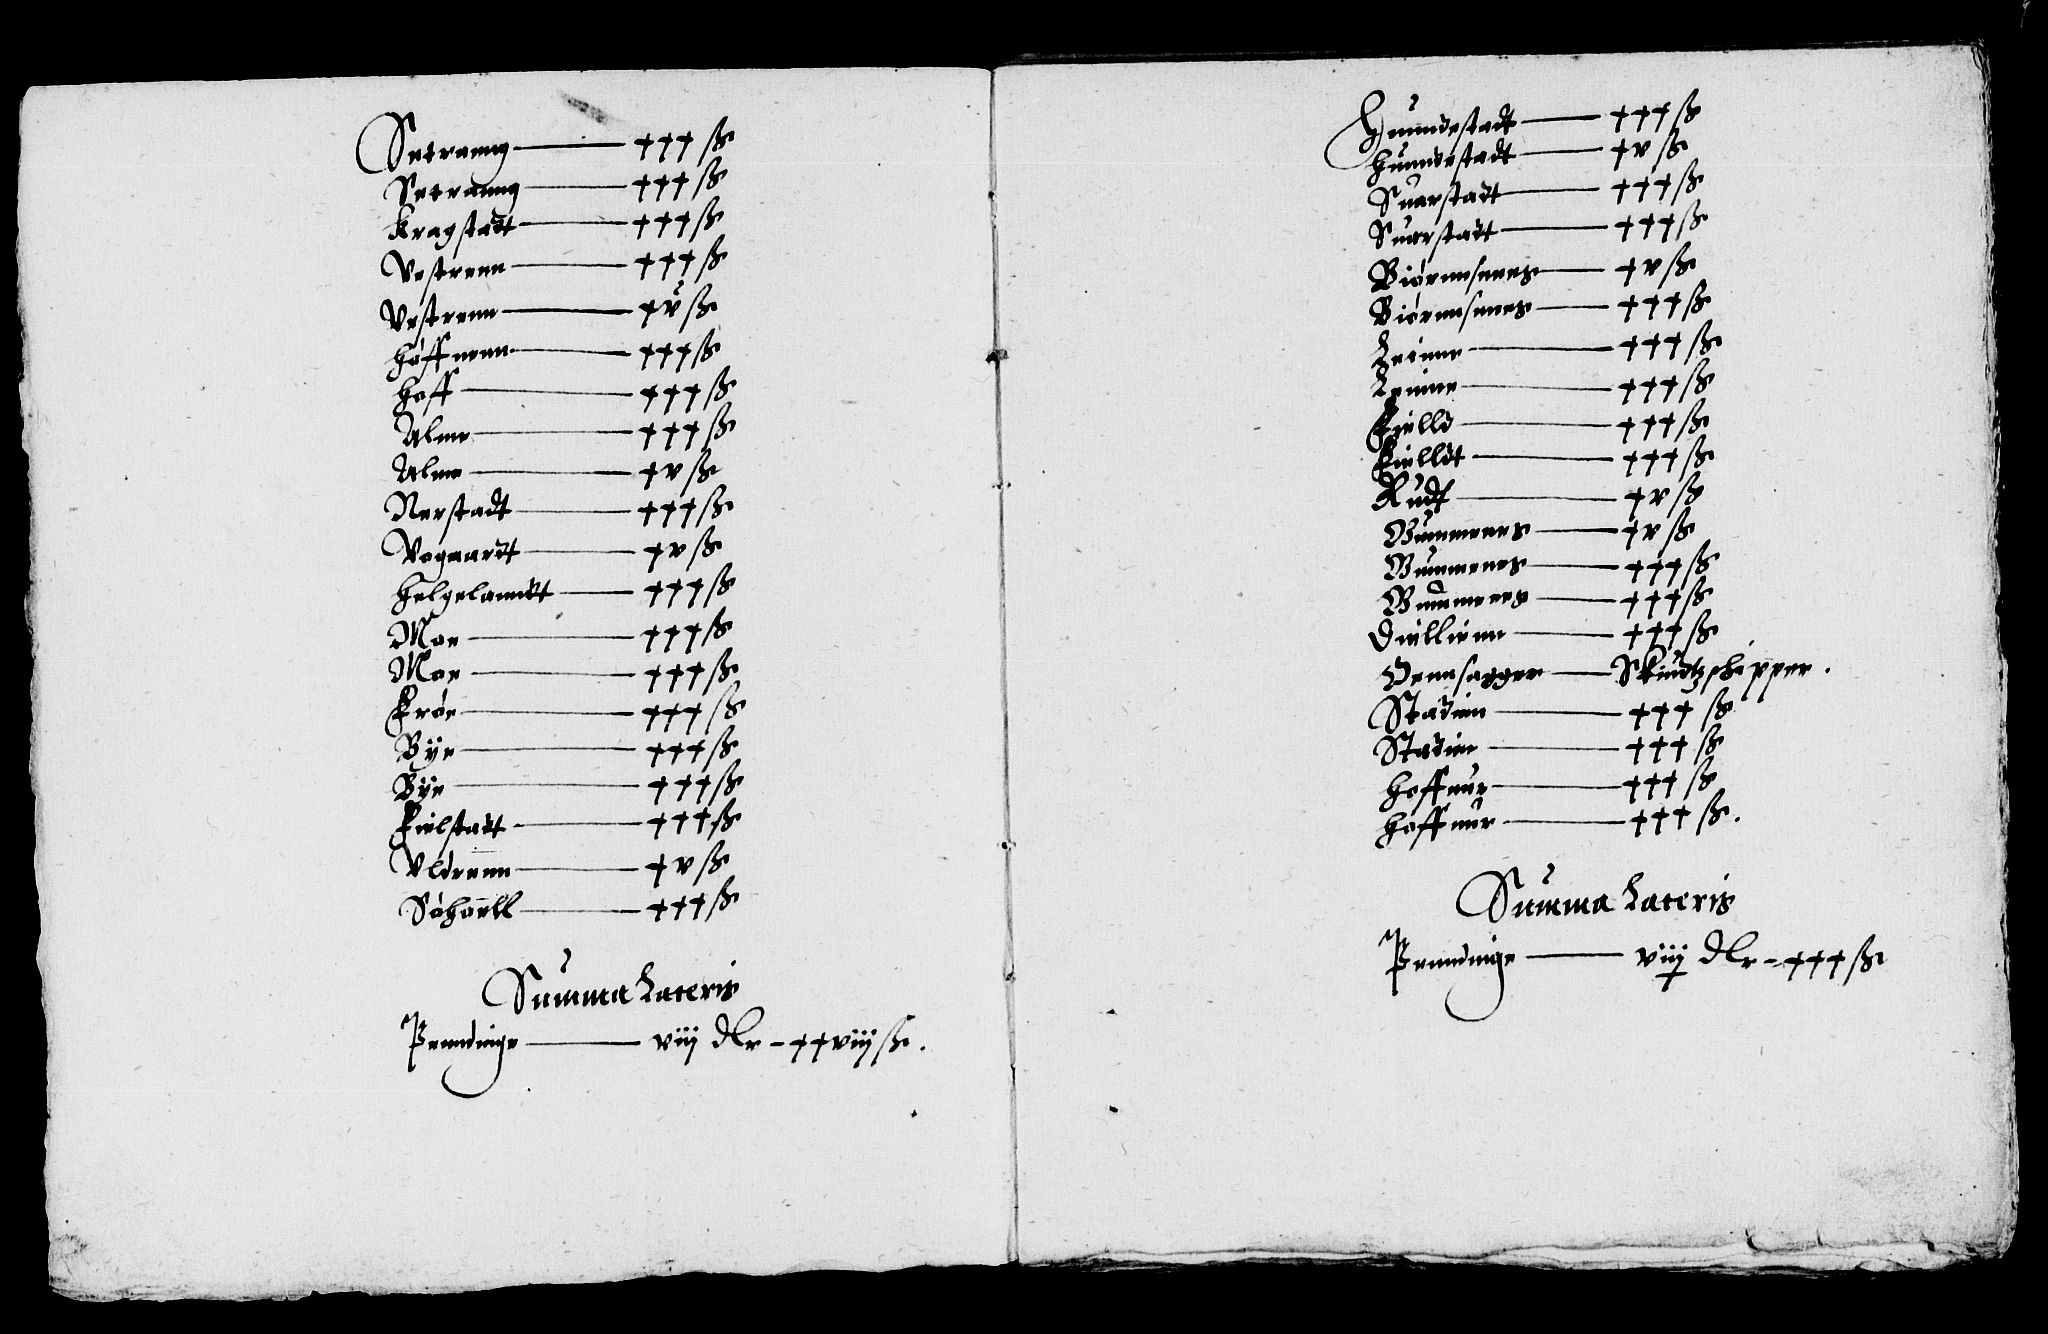 Setranng — xxx ß
Setranng — xxx ß
Kragstadt — xxx ß
Vestrenn — xxx ß
Vestrenn — xv ß
Høffnenn — xxx ß
Hoff — xxx ß
Alme — xxx ß
Alme — xv ß
Nerstadt — xxx ß
Vogaardt — xv ß
Helgelanndt — xxx ß
Moe — xxx ß
Moe — xxx ß
Krøe — xxx ß
Bÿe — xxx ß
Bÿe — xxx ß
Fielstadt — xxx ß
Vldrenn — xv ß
Søhoell — xxx ß
Summa Lateris
Penndinge — viij dlr - xxviij ß.
Hunndestadt — xxx ß
Hunndestadt — xv ß
Suarstadt — xxx ß
Suarstadt — xxx ß
Biørnnsnnes — xv ß
Biørnnsnnes — xxx ß
Leinne — xxx ß
Lenine — xxx ß
Fielld — xxx ß
Fielldt — xxx ß
Rudt — xv ß
Gummenes — xv ß
Gummenes — xxx ß
Gummenes — xxx ß
Giellienn — xxx ß
Oennsagger — Skiudtzschipper.
Stadinn — xxx ß
Stadinn — xxx ß
Hoffnur — xxx ß
Hoffnur — xxx ß.
Summa Lateris
Penndinge — viij dlr - xxx ß